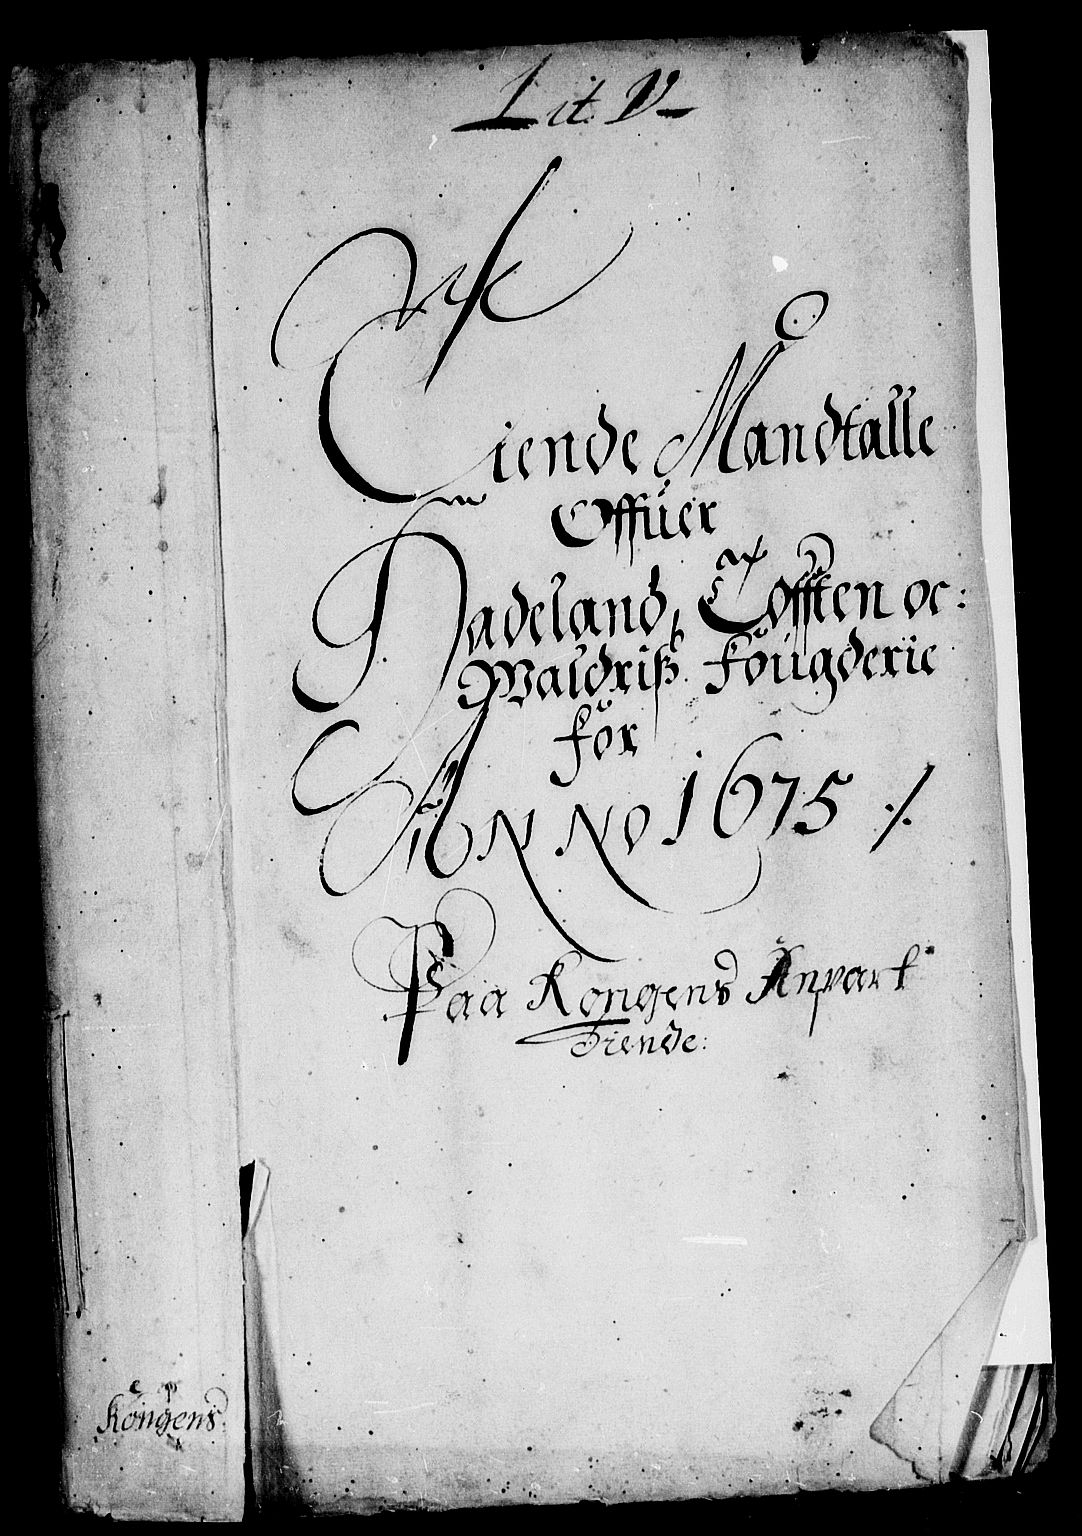 Lit. V
Tiende Mandtalle
Offüer
Hadeland, Tofften oc:
Waldriß. Fougderie
för
ANNO 1675 ·/.
Paa Kongens Anpart
Tiende:
Kongens